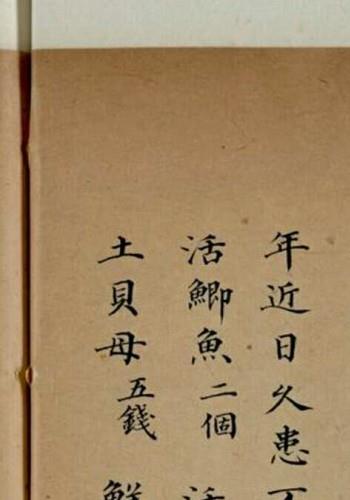 年近日久患
活鯽魚二個
土貝母五錢